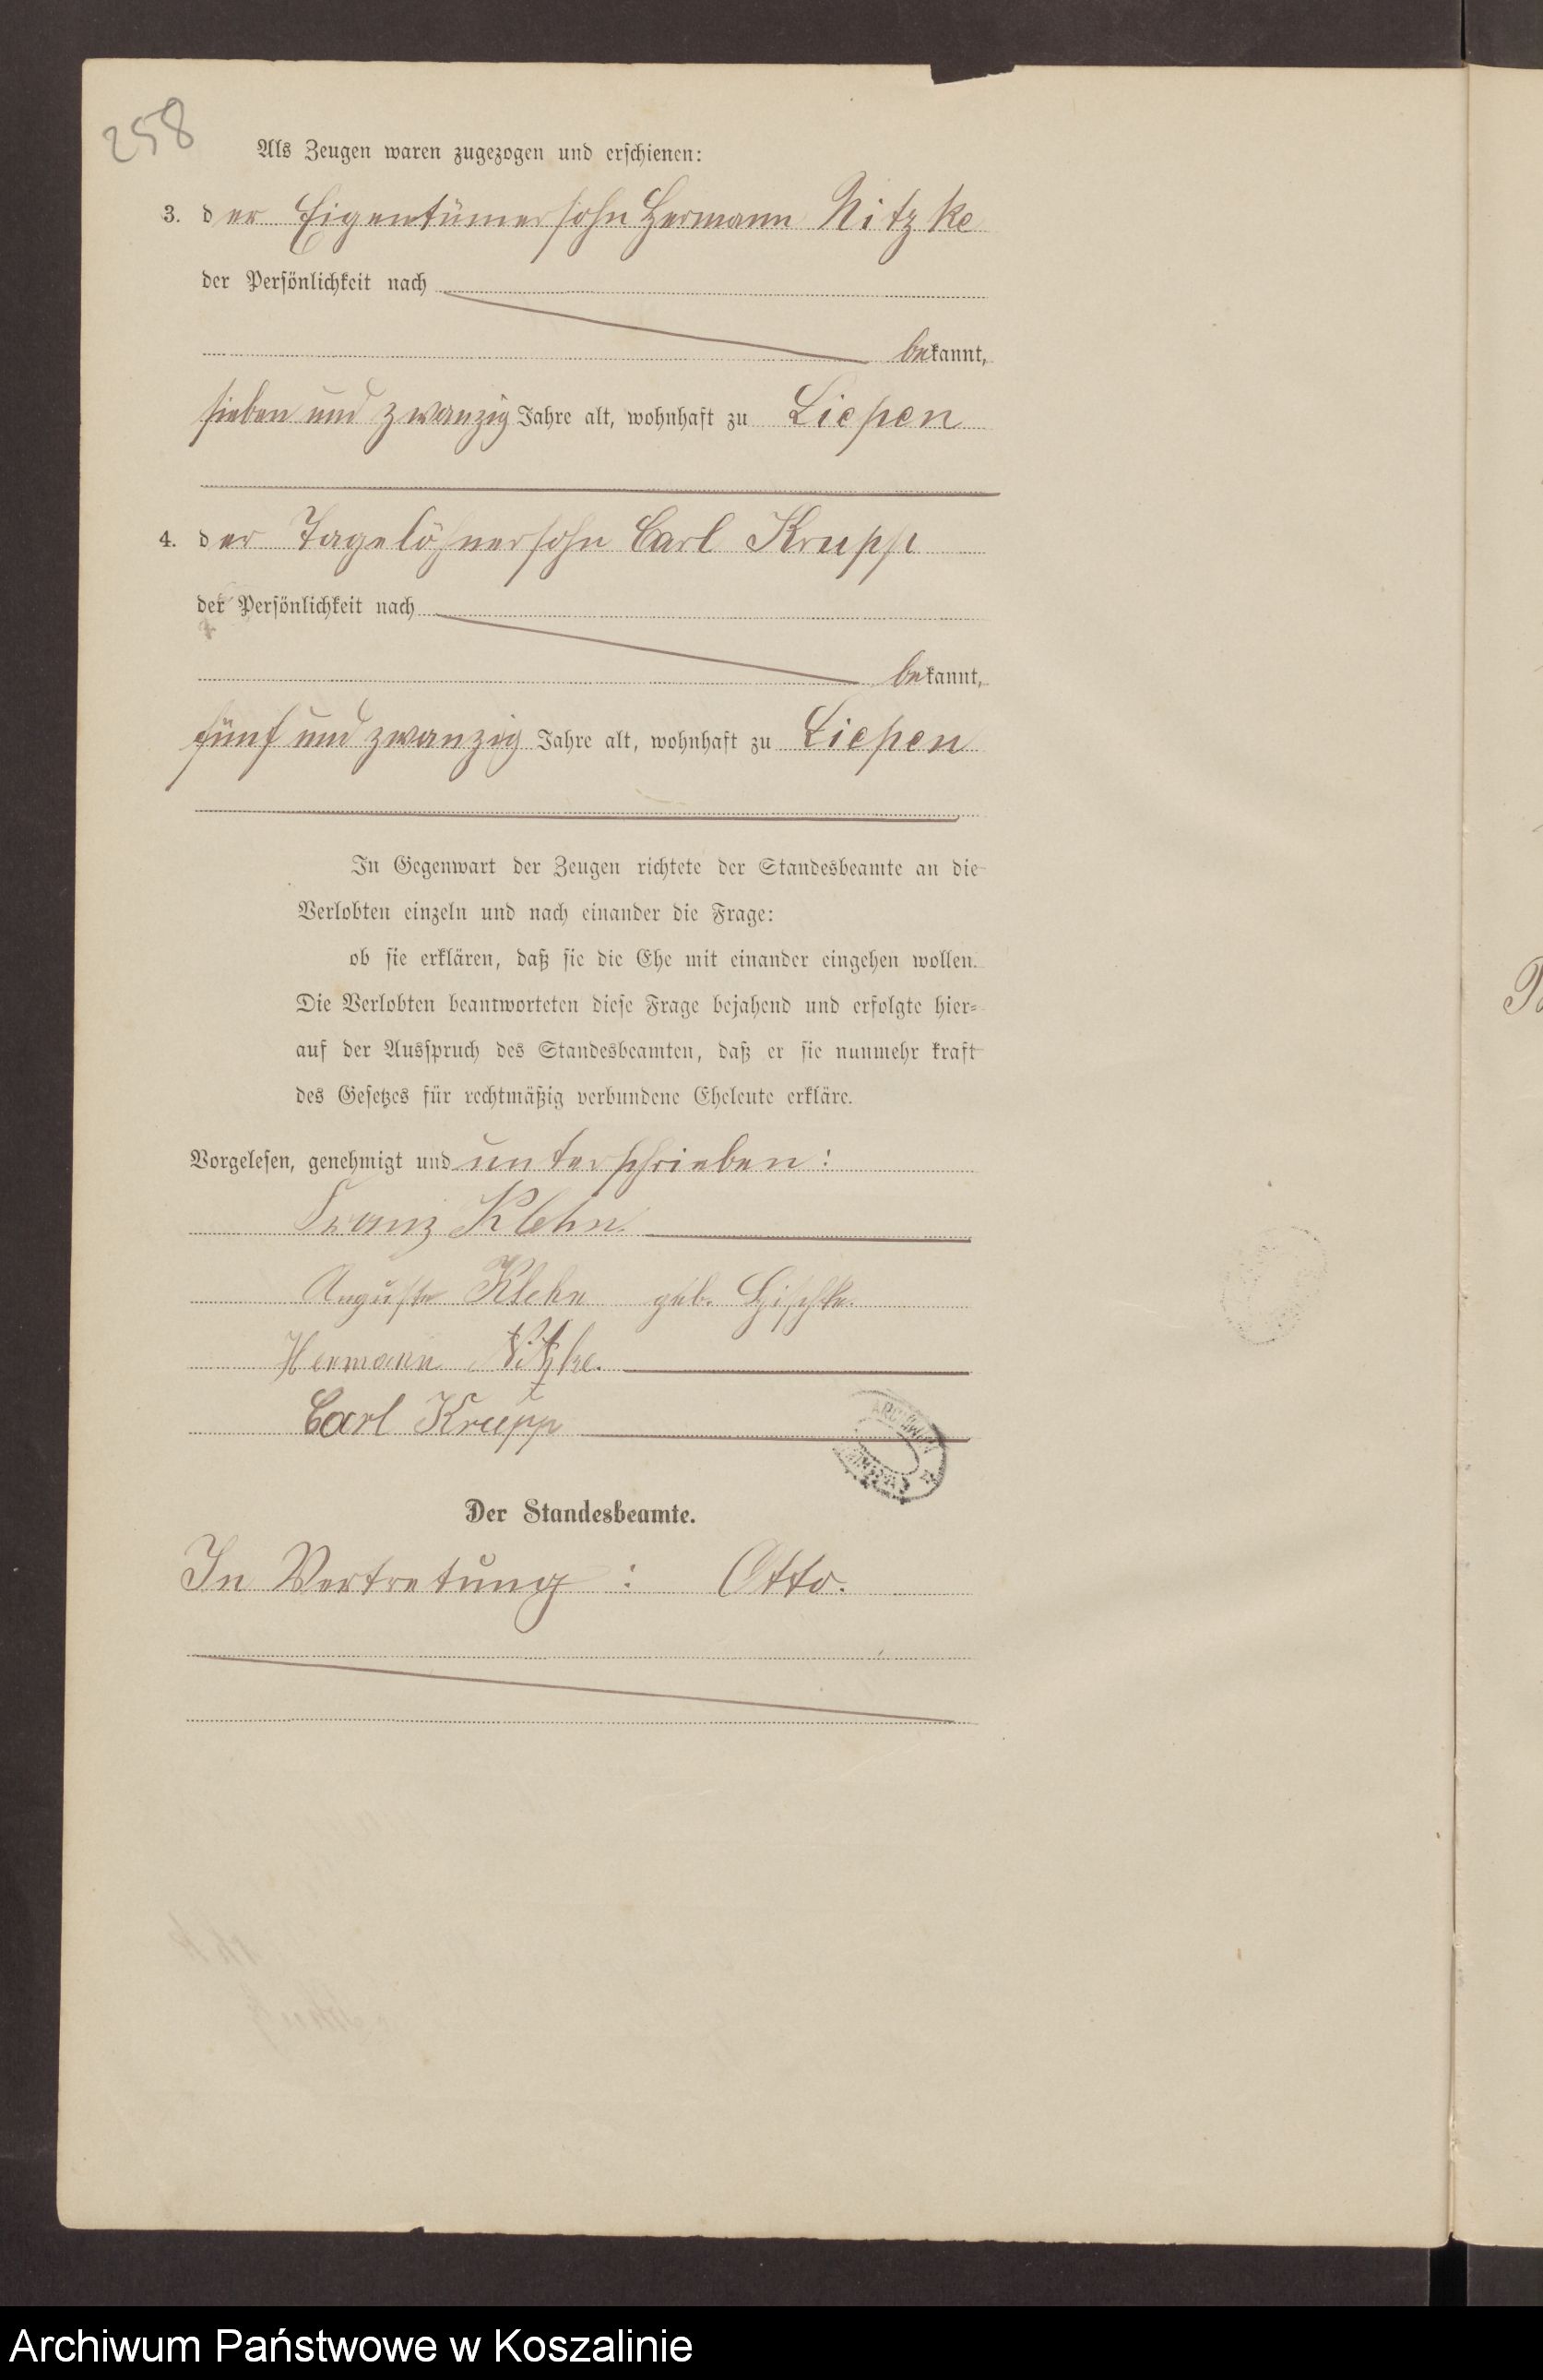 258
Als Zeugen waren zugezogen und erschienen:
3. der Eigentümersohn Hermann Nitzke
der Persönlichkeit nach
bekannt,
sieben und zwanzig Jahre alt, wohnhaft zu Liepen
4. der Tagelöhnersohn Carl Krupp
der Persönlichkeit nach
bekannt,
fünf und zwanzig Jahre alt, wohnhaft zu Liepen
In Gegenwart der Zeugen richtete der Standesbeamte an die
Verlobten einzeln und nach einander die Frage:
ob sie erklären, daß sie die Ehe mit einander eingehen wollen.
Die Verlobten beantworteten diese Frage bejahend und erfolgte hier-
auf der Ausspruch des Standesbeamten, daß er sie nunmehr kraft
des Gesetzes für rechtmäßig verbundene Eheleute erkläre.
Vorgelesen, genehmigt und unterschrieben:
Franz Klehn
Auguste Klehn geb.
Hermann Nitzke.
Carl Krupp
Der Standesbeamte.
In Vertretung: Otto.
Archiwum Państwowe w Koszalinie